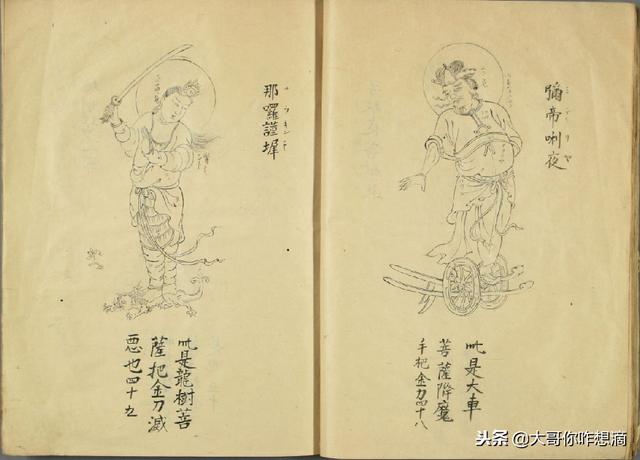 彌帝唎夜
此是大車
菩薩降魔
手把金刀四十八
那囉謹墀
此是龍樹菩
薩把金刀滅
悪也四十九
头条 @大哥你咋想滴